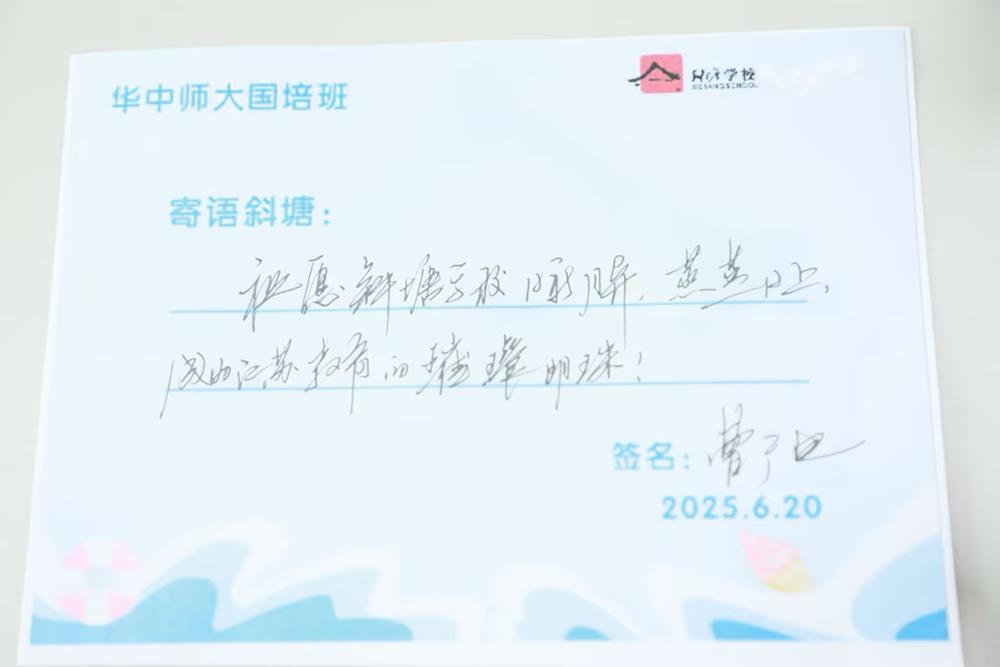 华中师大国培班
斜塘学校
XIETANG SCHOOL
寄语斜塘：
祝愿斜塘学校 蒸蒸日上，
成为江苏教育的璀璨明珠！
签名：曹
2025.6.20